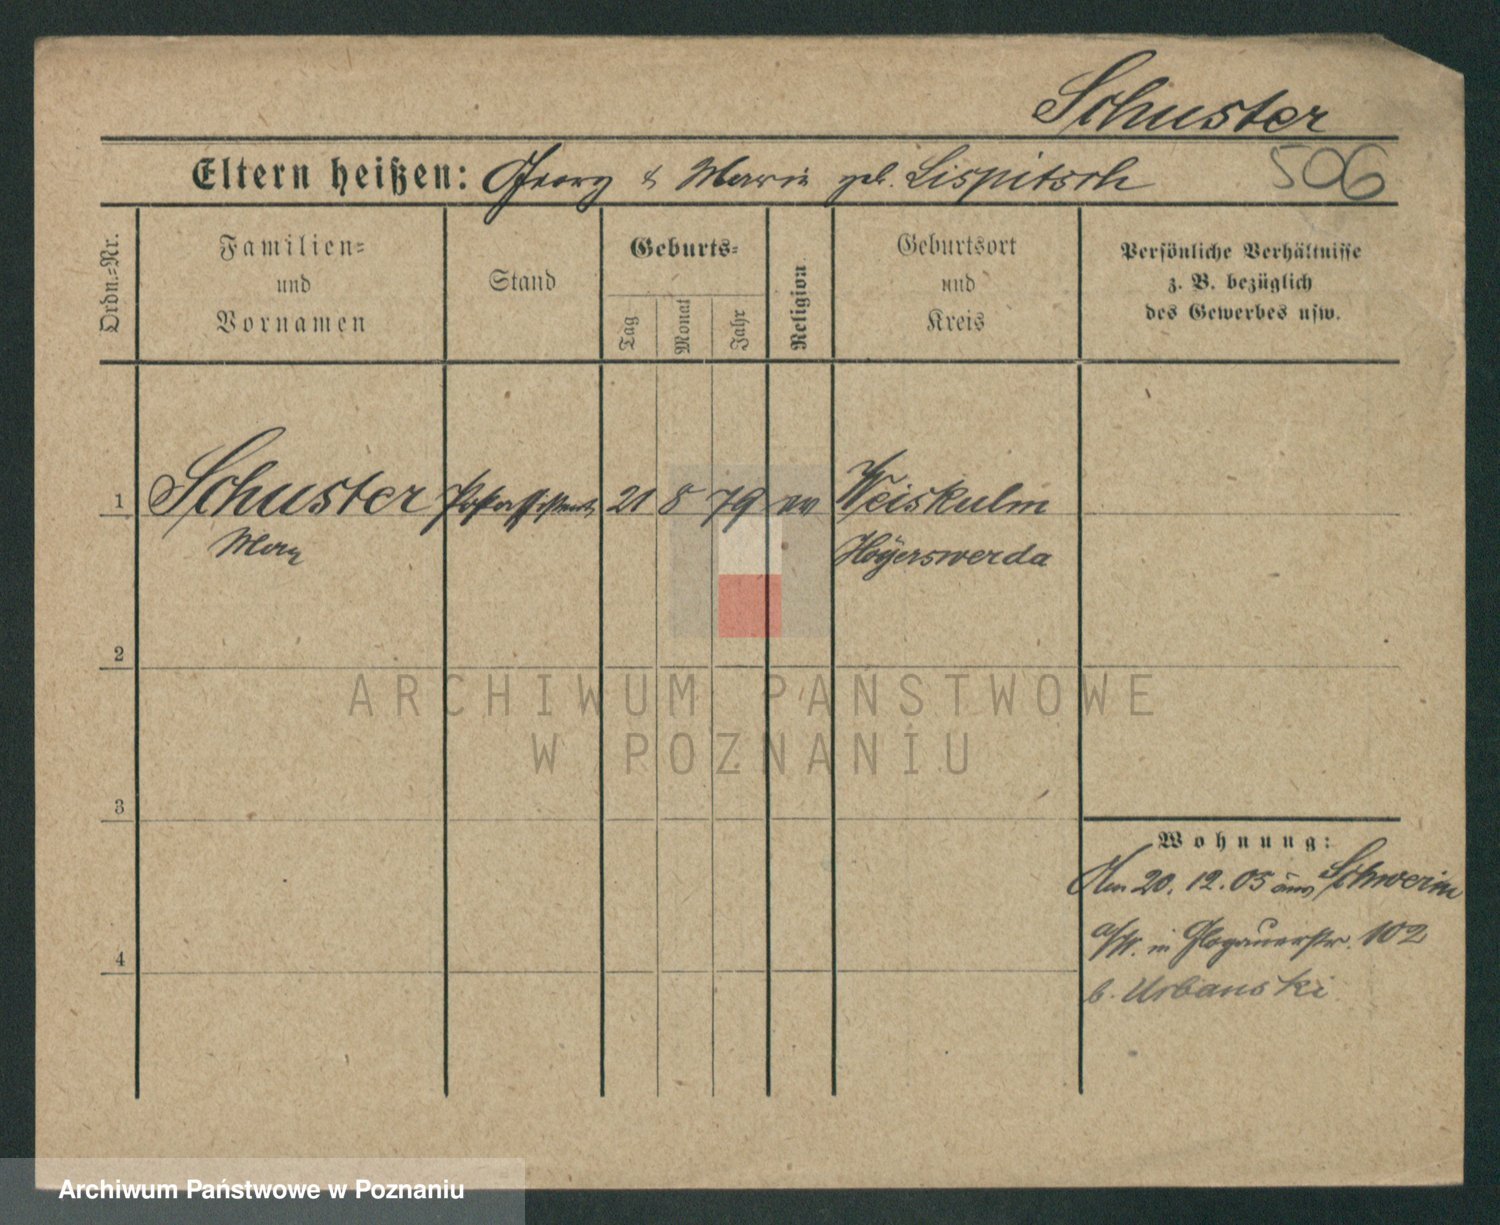 Schuster
Eltern heißen: Georg & Marie geb. Lispitsch
506
Ordn.=Nr.
Familien=
und
Vornamen
Stand
Geburts=
Tag
Monat
Jahr
Religion
Geburtsort
und
Kreis
Persönliche Verhältnisse
z. B. bezüglich
des Gewerbes usw.
1 Schuster Postassistent 21 8 79 ev Weiskulm
Max
Hoÿerswerda
2
ARCHIWUM PAŃSTWOWE
W POZNANIU
3
Wohnung:
Am 20. 12. 05 aus Schwerin
a/W. in Glogauerstr. 102
b. Urbanski
4
Archiwum Państwowe w Poznaniu